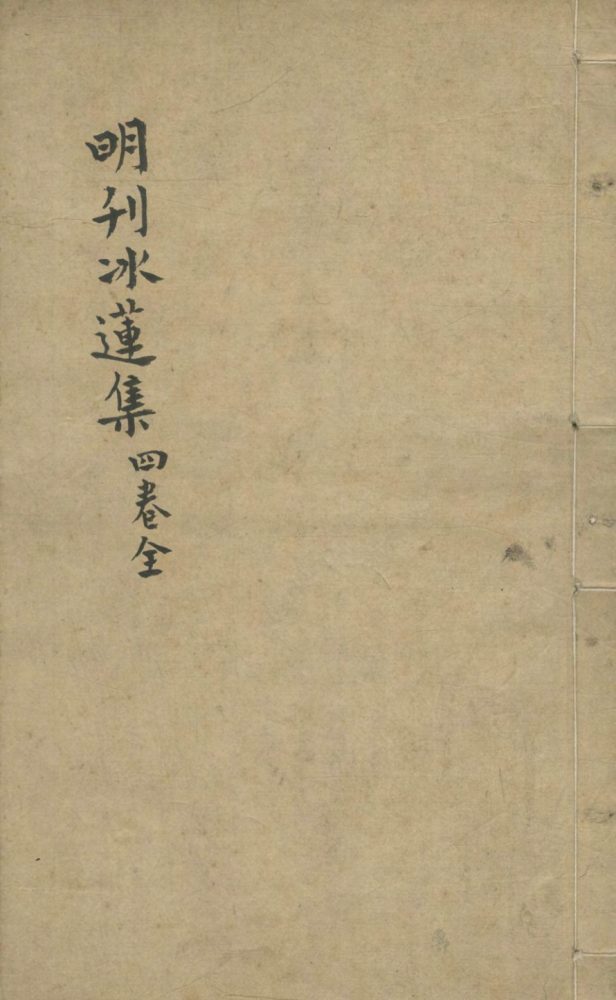 明刊冰蓮集四卷全